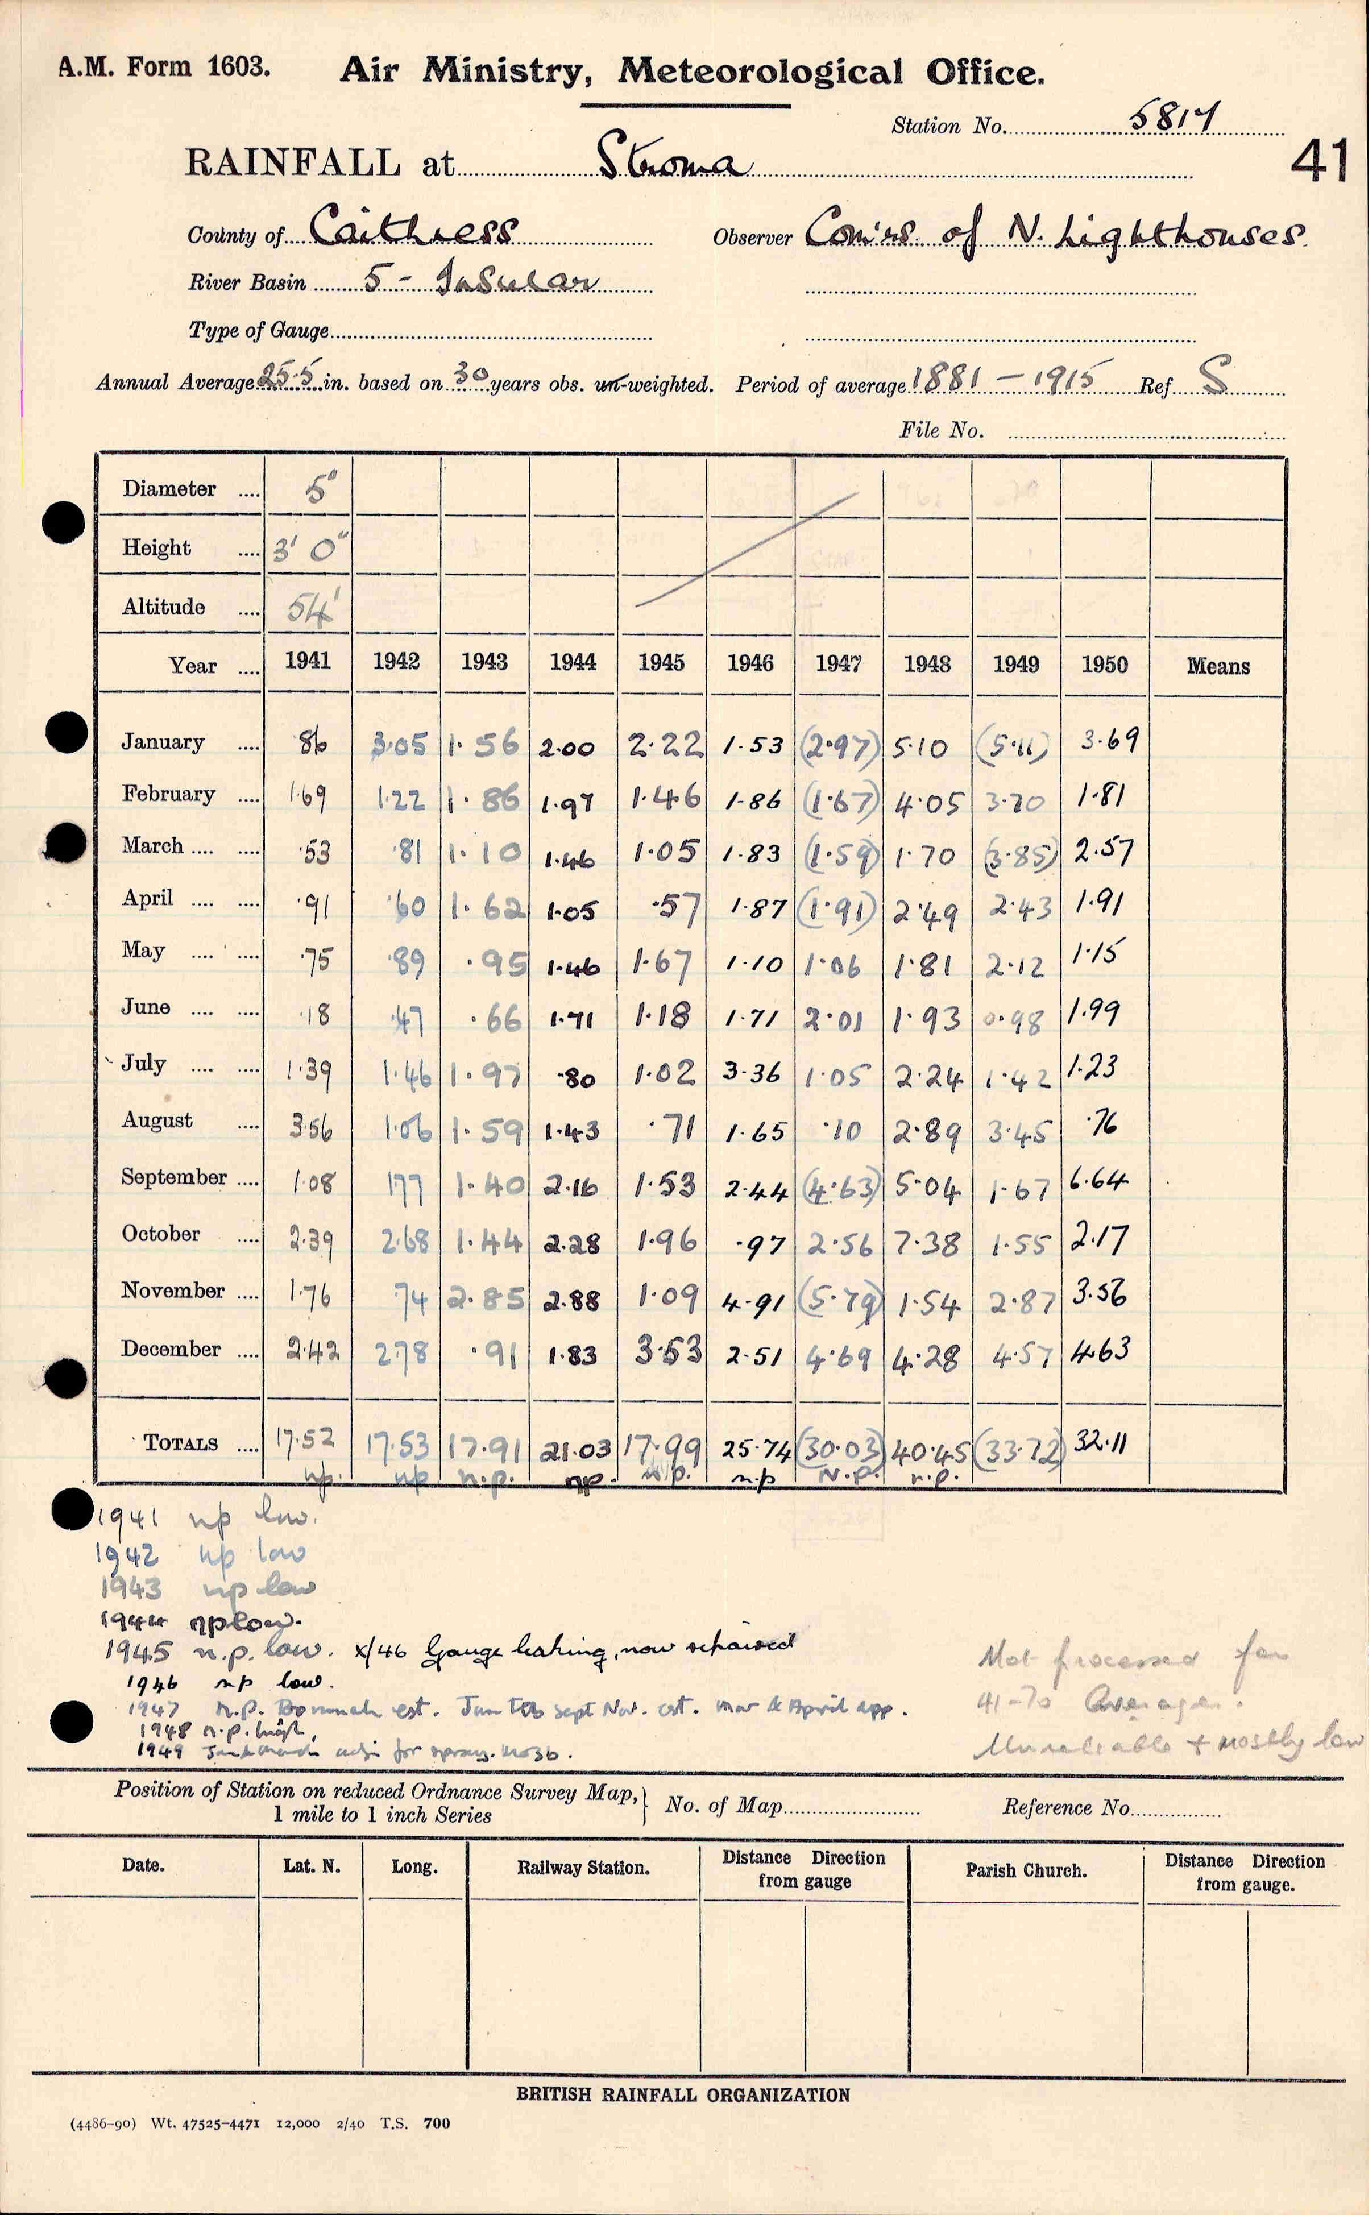 A.M. Form 1603. Air Ministry, Meteorological Office.
Station No. 5817
41
RAINFALL at Stroma
County of Caithness Observer Com'rs of N. Lighthouses.
River Basin 5 - Insular
Type of Gauge
Annual Average 25.5 in. based on 30 years obs. un-weighted. Period of average 1881 - 1915 Ref. S
File No.
Diameter .... 5"
Height .... 3' 0"
Altitude .... 54'
Year .... 1941 1942 1943 1944 1945 1946 1947 1948 1949 1950 Means
January .... .86 3.05 1.56 2.00 2.22 1.53 (2.97) 5.10 (5.11) 3.69
February .... 1.69 1.22 1.86 1.97 1.46 1.86 (1.67) 4.05 3.70 1.81
March .... .... .53 .81 1.10 1.46 1.05 1.83 (1.59) 1.70 (3.85) 2.57
April .... .... .91 .60 1.62 1.05 .57 1.87 (1.91) 2.49 2.43 1.91
May .... .... .75 .89 .95 1.46 1.67 1.10 1.06 1.81 2.12 1.15
June .... .... .18 .47 .66 1.71 1.18 1.71 2.01 1.93 0.98 1.99
July .... .... 1.39 1.46 1.97 .80 1.02 3.36 1.05 2.24 1.42 1.23
August .... 3.56 1.06 1.59 1.43 .71 1.65 .10 2.89 3.45 .76
September .... 1.08 1.77 1.40 2.16 1.53 2.44 (4.63) 5.04 1.67 6.64
October .... 2.39 2.68 1.44 2.28 1.96 .97 2.56 7.38 1.55 2.17
November .... 1.76 .74 2.85 2.88 1.09 4.91 (5.79) 1.54 2.87 3.56
December .... 2.42 2.78 .91 1.83 3.53 2.51 4.69 4.28 4.57 4.63
TOTALS .... 17.52 17.53 17.91 21.03 17.99 25.74 (30.03) 40.45 (33.72) 32.11
np. np n.p. np. n.p. n.p N.P. n.p.
1941 np low.
1942 np low
1943 np low
1944 np low.
1945 n.p. low. x/46 Gauge leaking, now repaired
1946 np low.
1947 N.P. est. Jan Feb Sept Nov. est. Mar & April app.
1948 n.p. high.
1949 Jan & March adj. for spray.
Not processed for
41-70 Averages.
Unreliable + mostly low
Position of Station on reduced Ordnance Survey Map,
1 mile to 1 inch Series
No. of Map Reference No.
Date. Lat. N. Long. Railway Station. Distance Direction from gauge Parish Church. Distance Direction from gauge.
BRITISH RAINFALL ORGANIZATION
(4486-90) Wt. 47525-4471 12,000 2/40 T.S. 700